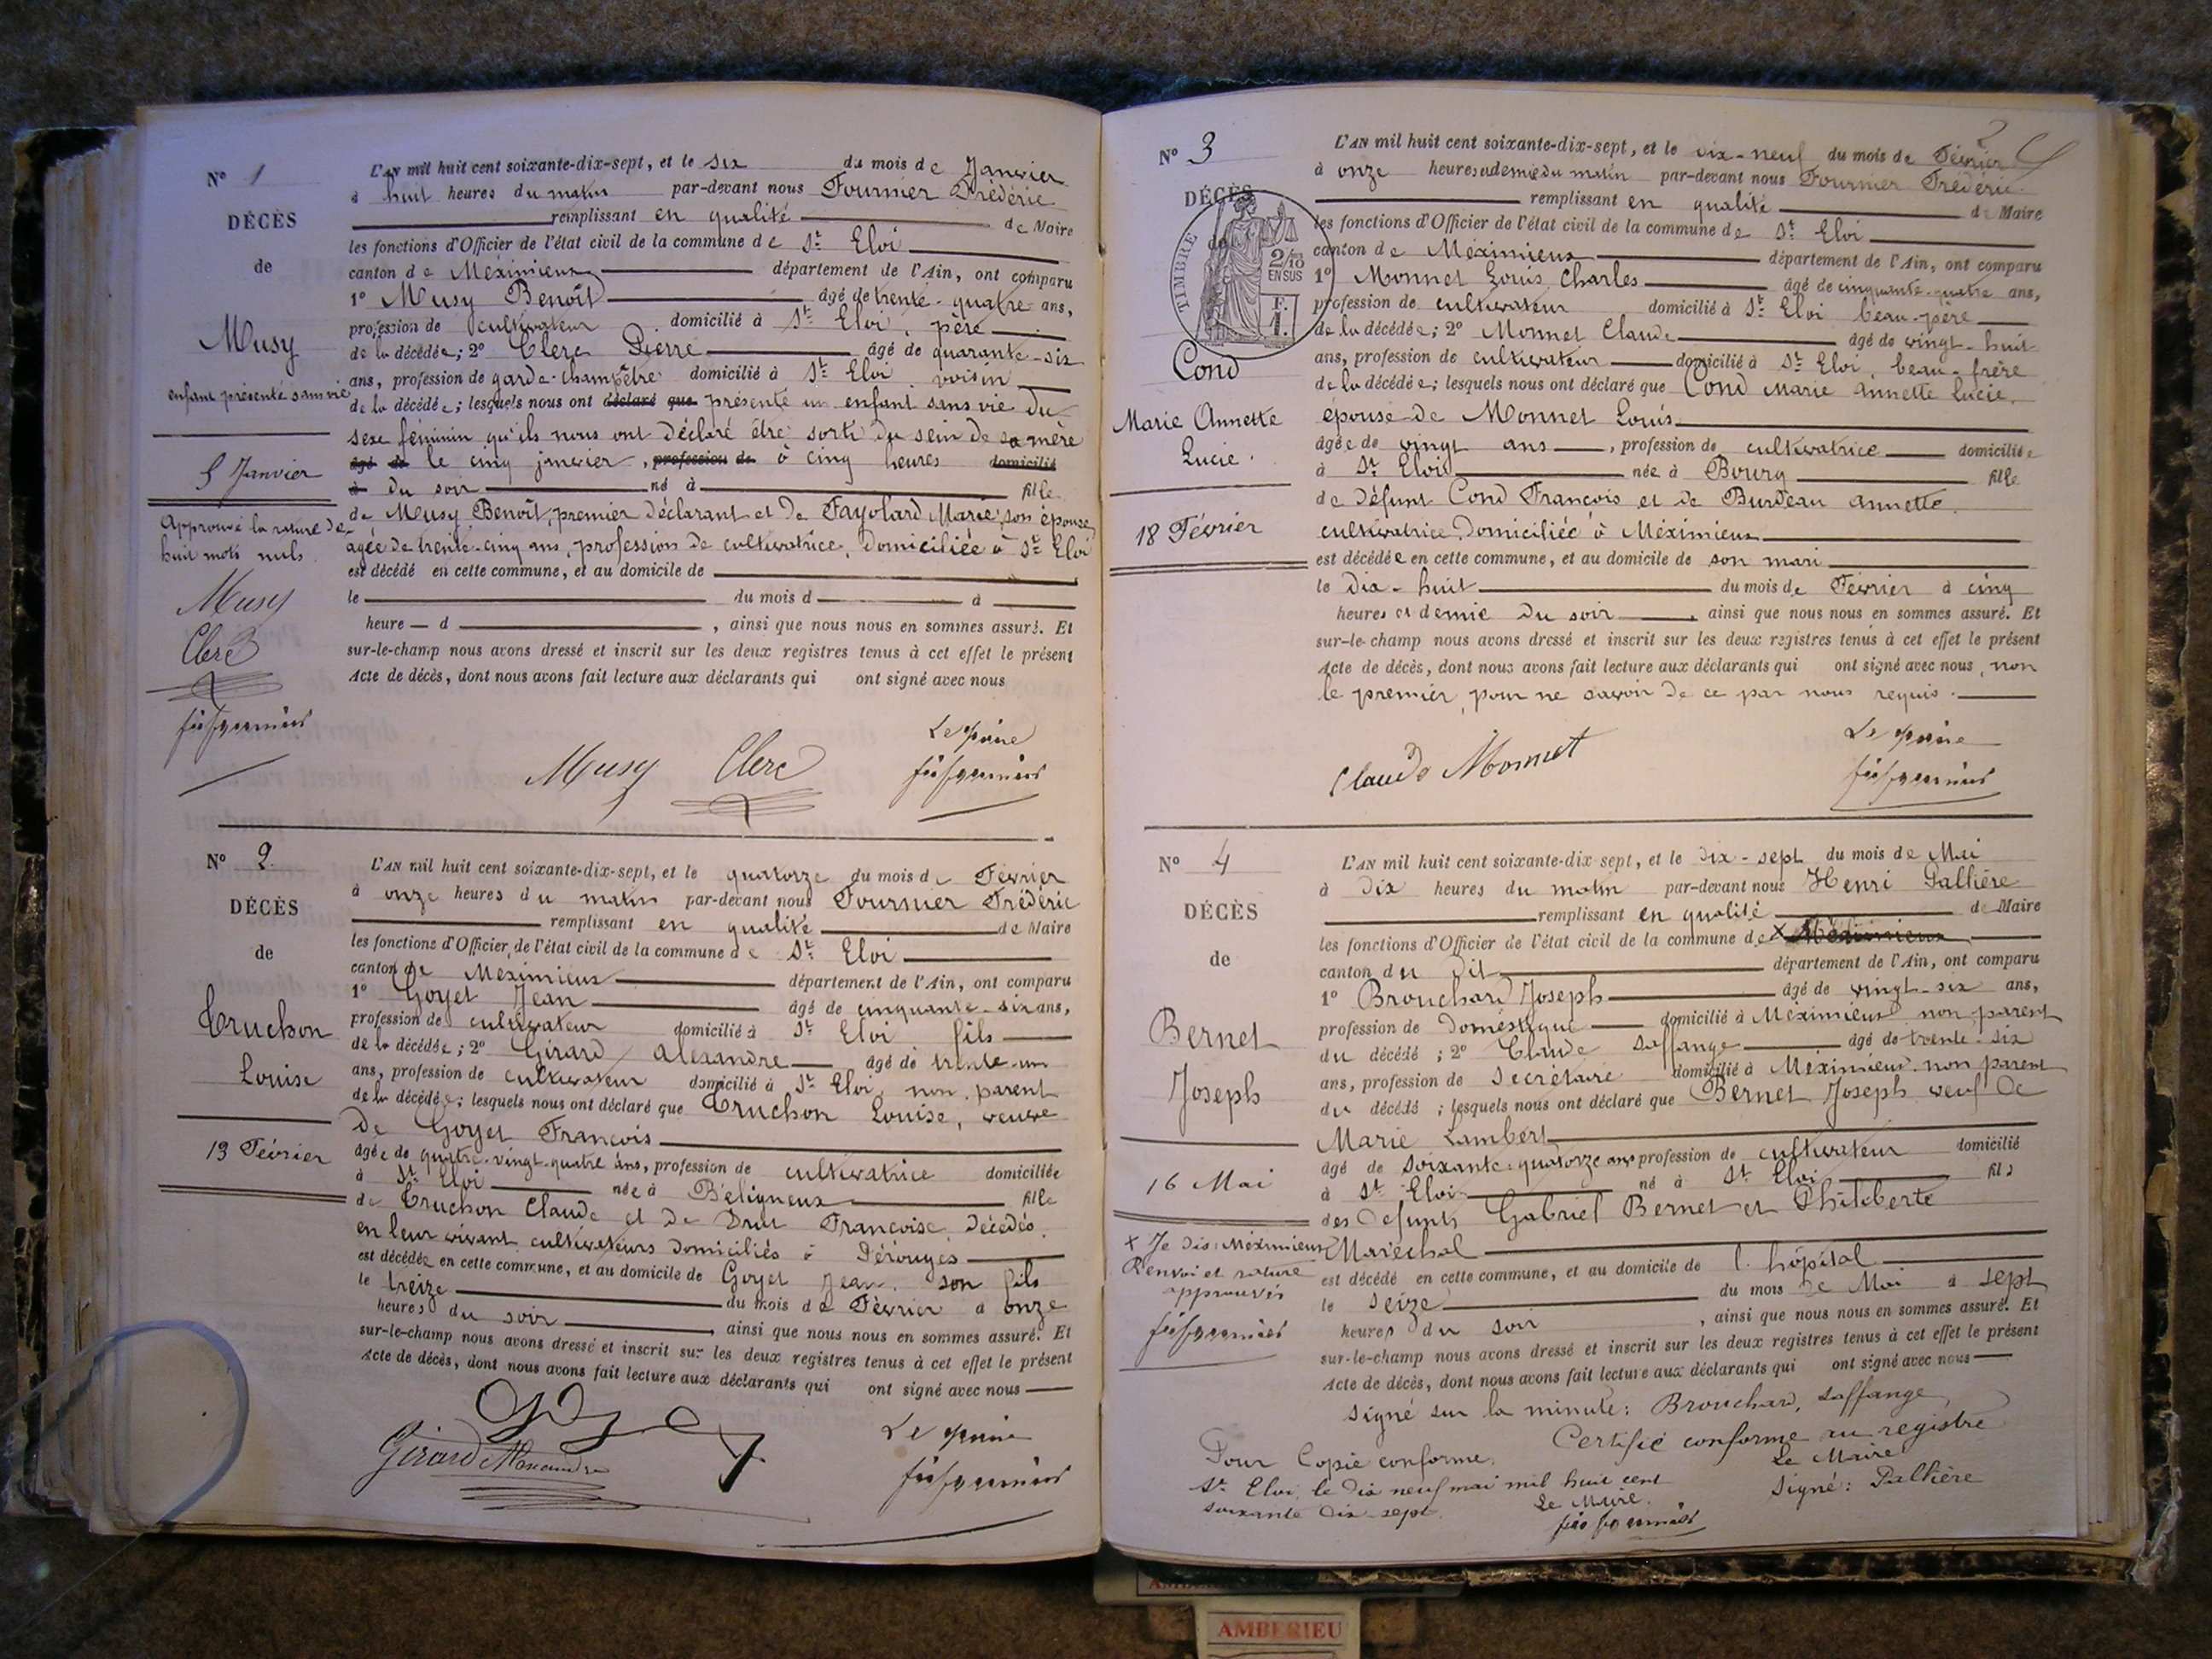 N° 1
DÉCÈS
de
Musy
enfant présenté sans vie
5 Janvier
Approuvé la rature de
huit mots nuls
Musy
Clerc
L'AN mil huit cent soixante-dix-sept, et le six du mois de Janvier
à huit heures du matin par-devant nous Fournier Frédéric
remplissant en qualité de Maire
les fonctions d'Officier de l'état civil de la commune de St Eloi
canton de Méximieux département de l'Ain, ont comparu
1° Musy Benoît âgé de trente-quatre ans,
profession de cultivateur domicilié à St Eloi, père
de la décédée; 2° Clerc Pierre âgé de quarante-six
ans, profession de garde-champêtre domicilié à St Eloi voisin
de la décédée; lesquels nous ont déclaré que présenté un enfant sans vie du
sexe féminin qu'ils nous ont déclaré être sorti du sein de sa mère
âgé de le cinq janvier, profession de à cinq heures domicilié
à du soir né à fille
de Musy Benoît, premier déclarant et de Fayolard Marie, son épouse
agée de trente-cinq ans, profession de cultivatrice, domiciliée à St Eloi
est décédé en cette commune, et au domicile de
le du mois d à
heure d , ainsi que nous nous en sommes assuré. Et
sur-le-champ nous avons dressé et inscrit sur les deux registres tenus à cet effet le présent
Acte de décès, dont nous avons fait lecture aux déclarants qui ont signé avec nous
Musy Clerc Le Maire
N° 2
DÉCÈS
de
Truchon
Louise
13 Février
L'AN mil huit cent soixante-dix-sept, et le quatorze du mois de Février
à onze heures du matin par-devant nous Fournier Frédéric
remplissant en qualité de Maire
les fonctions d'Officier de l'état civil de la commune de St Eloi
canton de Méximieux département de l'Ain, ont comparu
1° Goyet Jean âgé de cinquante-six ans,
profession de cultivateur domicilié à St Eloi fils
de la décédée; 2° Girard Alexandre âgé de trente-un
ans, profession de cultivateur domicilié à St Eloi, non parent
de la décédée; lesquels nous ont déclaré que Truchon Louise, veuve
de Goyet François
âgée de quatre-vingt-quatre ans, profession de cultivatrice domiciliée
à St Eloi née à Béligneux fille
de Truchon Claude et de Drut Françoise, décédés,
en leur vivant cultivateurs domiciliés à Pérouges
est décédée en cette commune, et au domicile de Goyet Jean, son fils
le treize du mois de Février à onze
heures du soir , ainsi que nous nous en sommes assuré. Et
sur-le-champ nous avons dressé et inscrit sur les deux registres tenus à cet effet le présent
Acte de décès, dont nous avons fait lecture aux déclarants qui ont signé avec nous
Girard Alexandre Le Maire
N° 3
DÉCÈS
de
TIMBRE
2/10
EN SUS
F.
1.
Cond
Marie Annette
Lucie.
18 Février
L'AN mil huit cent soixante-dix-sept, et le dix-neuf du mois de Février
à onze heures et demie du matin par-devant nous Fournier Frédéric
remplissant en qualité de Maire
les fonctions d'Officier de l'état civil de la commune de St Eloi
canton de Méximieux département de l'Ain, ont comparu
1° Monnet Louis, Charles âgé de cinquante-quatre ans,
profession de cultivateur domicilié à St Eloi beau-père
de la décédée; 2° Monnet Claude âgé de vingt-huit
ans, profession de cultivateur domicilié à St Eloi, beau-frère
de la décédée; lesquels nous ont déclaré que Cond Marie Annette Lucie,
épouse de Monnet Louis
âgée de vingt ans, profession de cultivatrice domiciliée
à St Eloi née à Bourg fille
de défunt Cond François et de Burdeau Annette,
cultivatrice domiciliée à Méximieux
est décédée en cette commune, et au domicile de son mari
le dix-huit du mois de Février à cinq
heures et demie du soir , ainsi que nous nous en sommes assuré. Et
sur-le-champ nous avons dressé et inscrit sur les deux registres tenus à cet effet le présent
Acte de décès, dont nous avons fait lecture aux déclarants qui ont signé avec nous, non
le premier, pour ne savoir de ce par nous requis.
Claude Monnet Le Maire
N° 4
DÉCÈS
de
Bernet
Joseph
16 Mai
x Je dis: Méximieux
Renvoi et rature
approuvés
L'AN mil huit cent soixante-dix-sept, et le dix-sept du mois de Mai
à dix heures du matin par-devant nous Henri Pallière
remplissant en qualité de Maire
les fonctions d'Officier de l'état civil de la commune de x Méximieux
canton du dit département de l'Ain, ont comparu
1° Brouchard Joseph âgé de vingt-six ans,
profession de Domestique domicilié à Méximieux non parent
du décédé; 2° Claude Saffange âgé de trente-six
ans, profession de Secrétaire domicilié à Méximieux non parent
du décédé; lesquels nous ont déclaré que Bernet Joseph veuf de
Marie Lambert
âgé de soixante-quatorze ans profession de cultivateur domicilié
à St Eloi né à St Eloi fils
des défunts Gabriel Bernet et Philiberte
Maréchal
est décédé en cette commune, et au domicile de l'hôpital
le seize du mois de Mai à sept
heures du soir , ainsi que nous nous en sommes assuré. Et
sur-le-champ nous avons dressé et inscrit sur les deux registres tenus à cet effet le présent
Acte de décès, dont nous avons fait lecture aux déclarants qui ont signé avec nous
Signé sur la minute: Brouchard, Saffange
Certifié conforme au registre
Le Maire
Signé: Pallière
Pour Copie conforme.
St Eloi, le dix neuf mai mil huit cent
soixante dix-sept.
Le Maire.
AMBERIEU